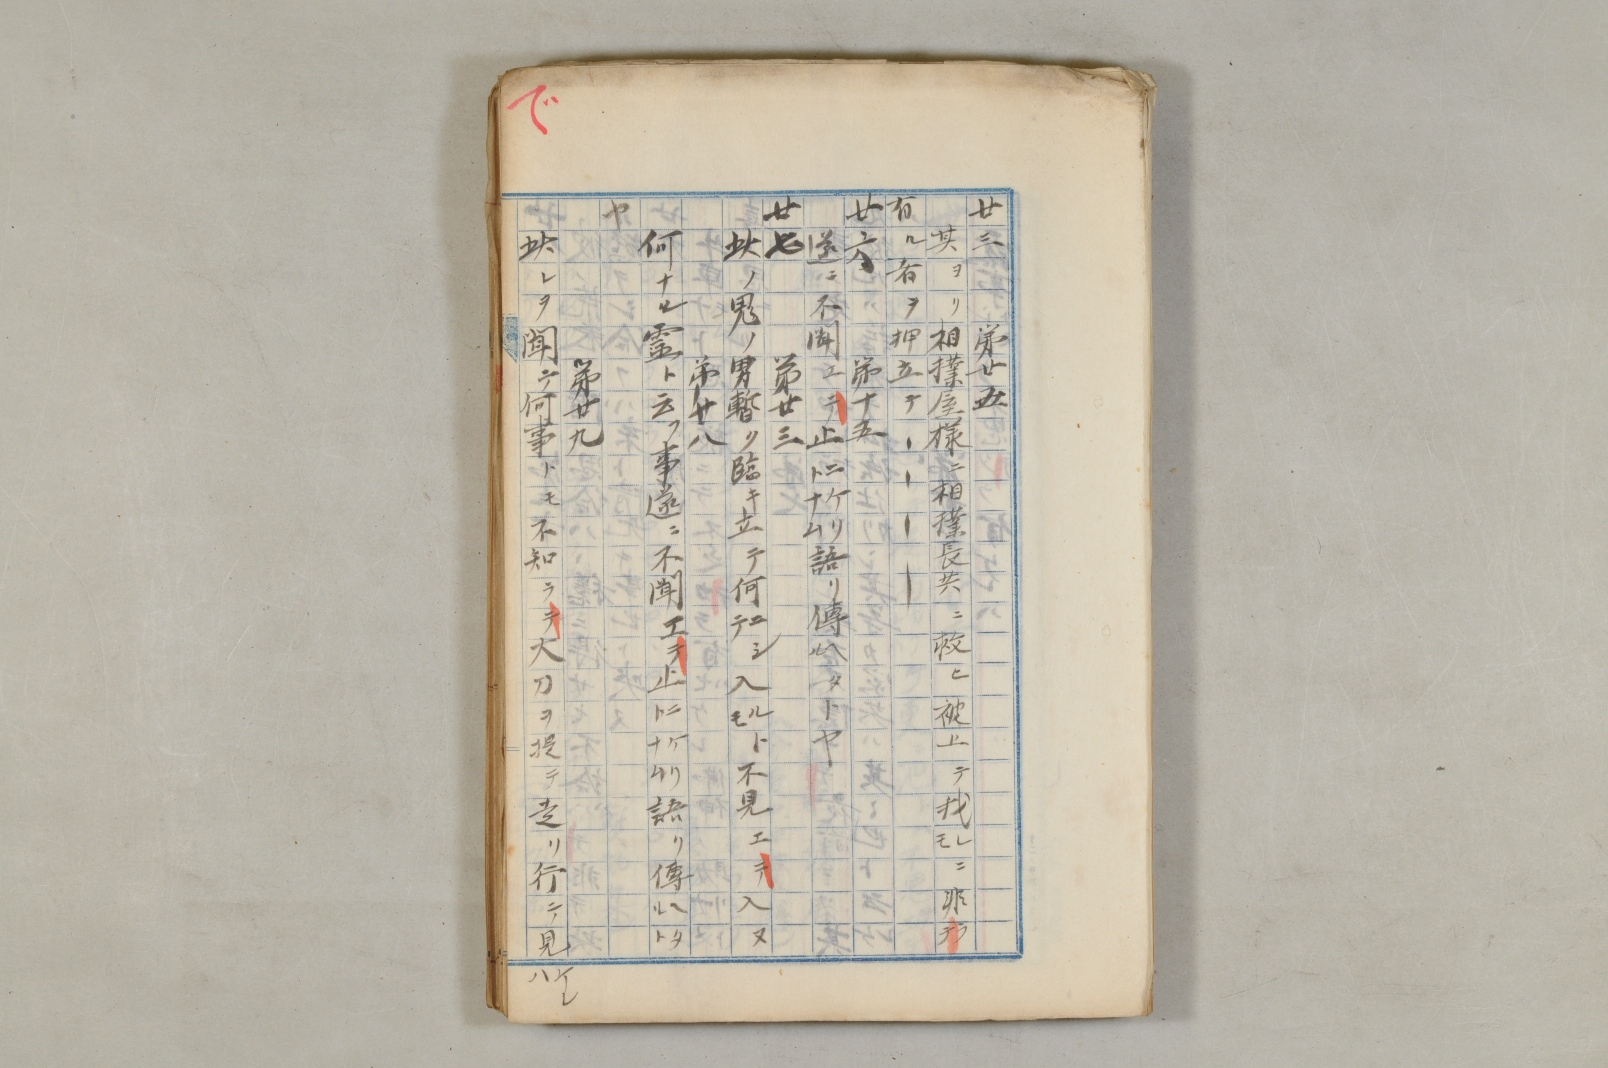 で
廿三 第廿五
其ヨリ相撲屋様ニ相撲長共ニ敕ヒ被上テ我レモニ非デラ
有ル者ヲ押立テーーーー
廿六 第十五
遂ニ不聞エテ止ニケリトナム語リ傳ヘルタトヤ
廿七 第廿三
此ノ鬼ノ男暫ク臨キ立テ何ニシテエミ入ルトモ不見エテ入ヌ
第廿八
何ナル霊ト云フ事遂ニ不聞エテ止ニケリトナム語リ傳ヘルタト
ヤ
第廿九
此レヲ聞テ何事トモ不知ラデ大刀ヲ提テ走リ行テ見ケレハ